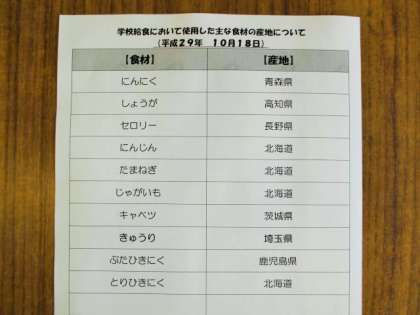 学校給食において使用した主な食材の産地について
（平成２９年　１０月１８日）
【食材】　【産地】
にんにく　青森県
しょうが　高知県
セロリー　長野県
にんじん　北海道
たまねぎ　北海道
じゃがいも　北海道
キャベツ　茨城県
きゅうり　埼玉県
ぶたひきにく　鹿児島県
とりひきにく　北海道